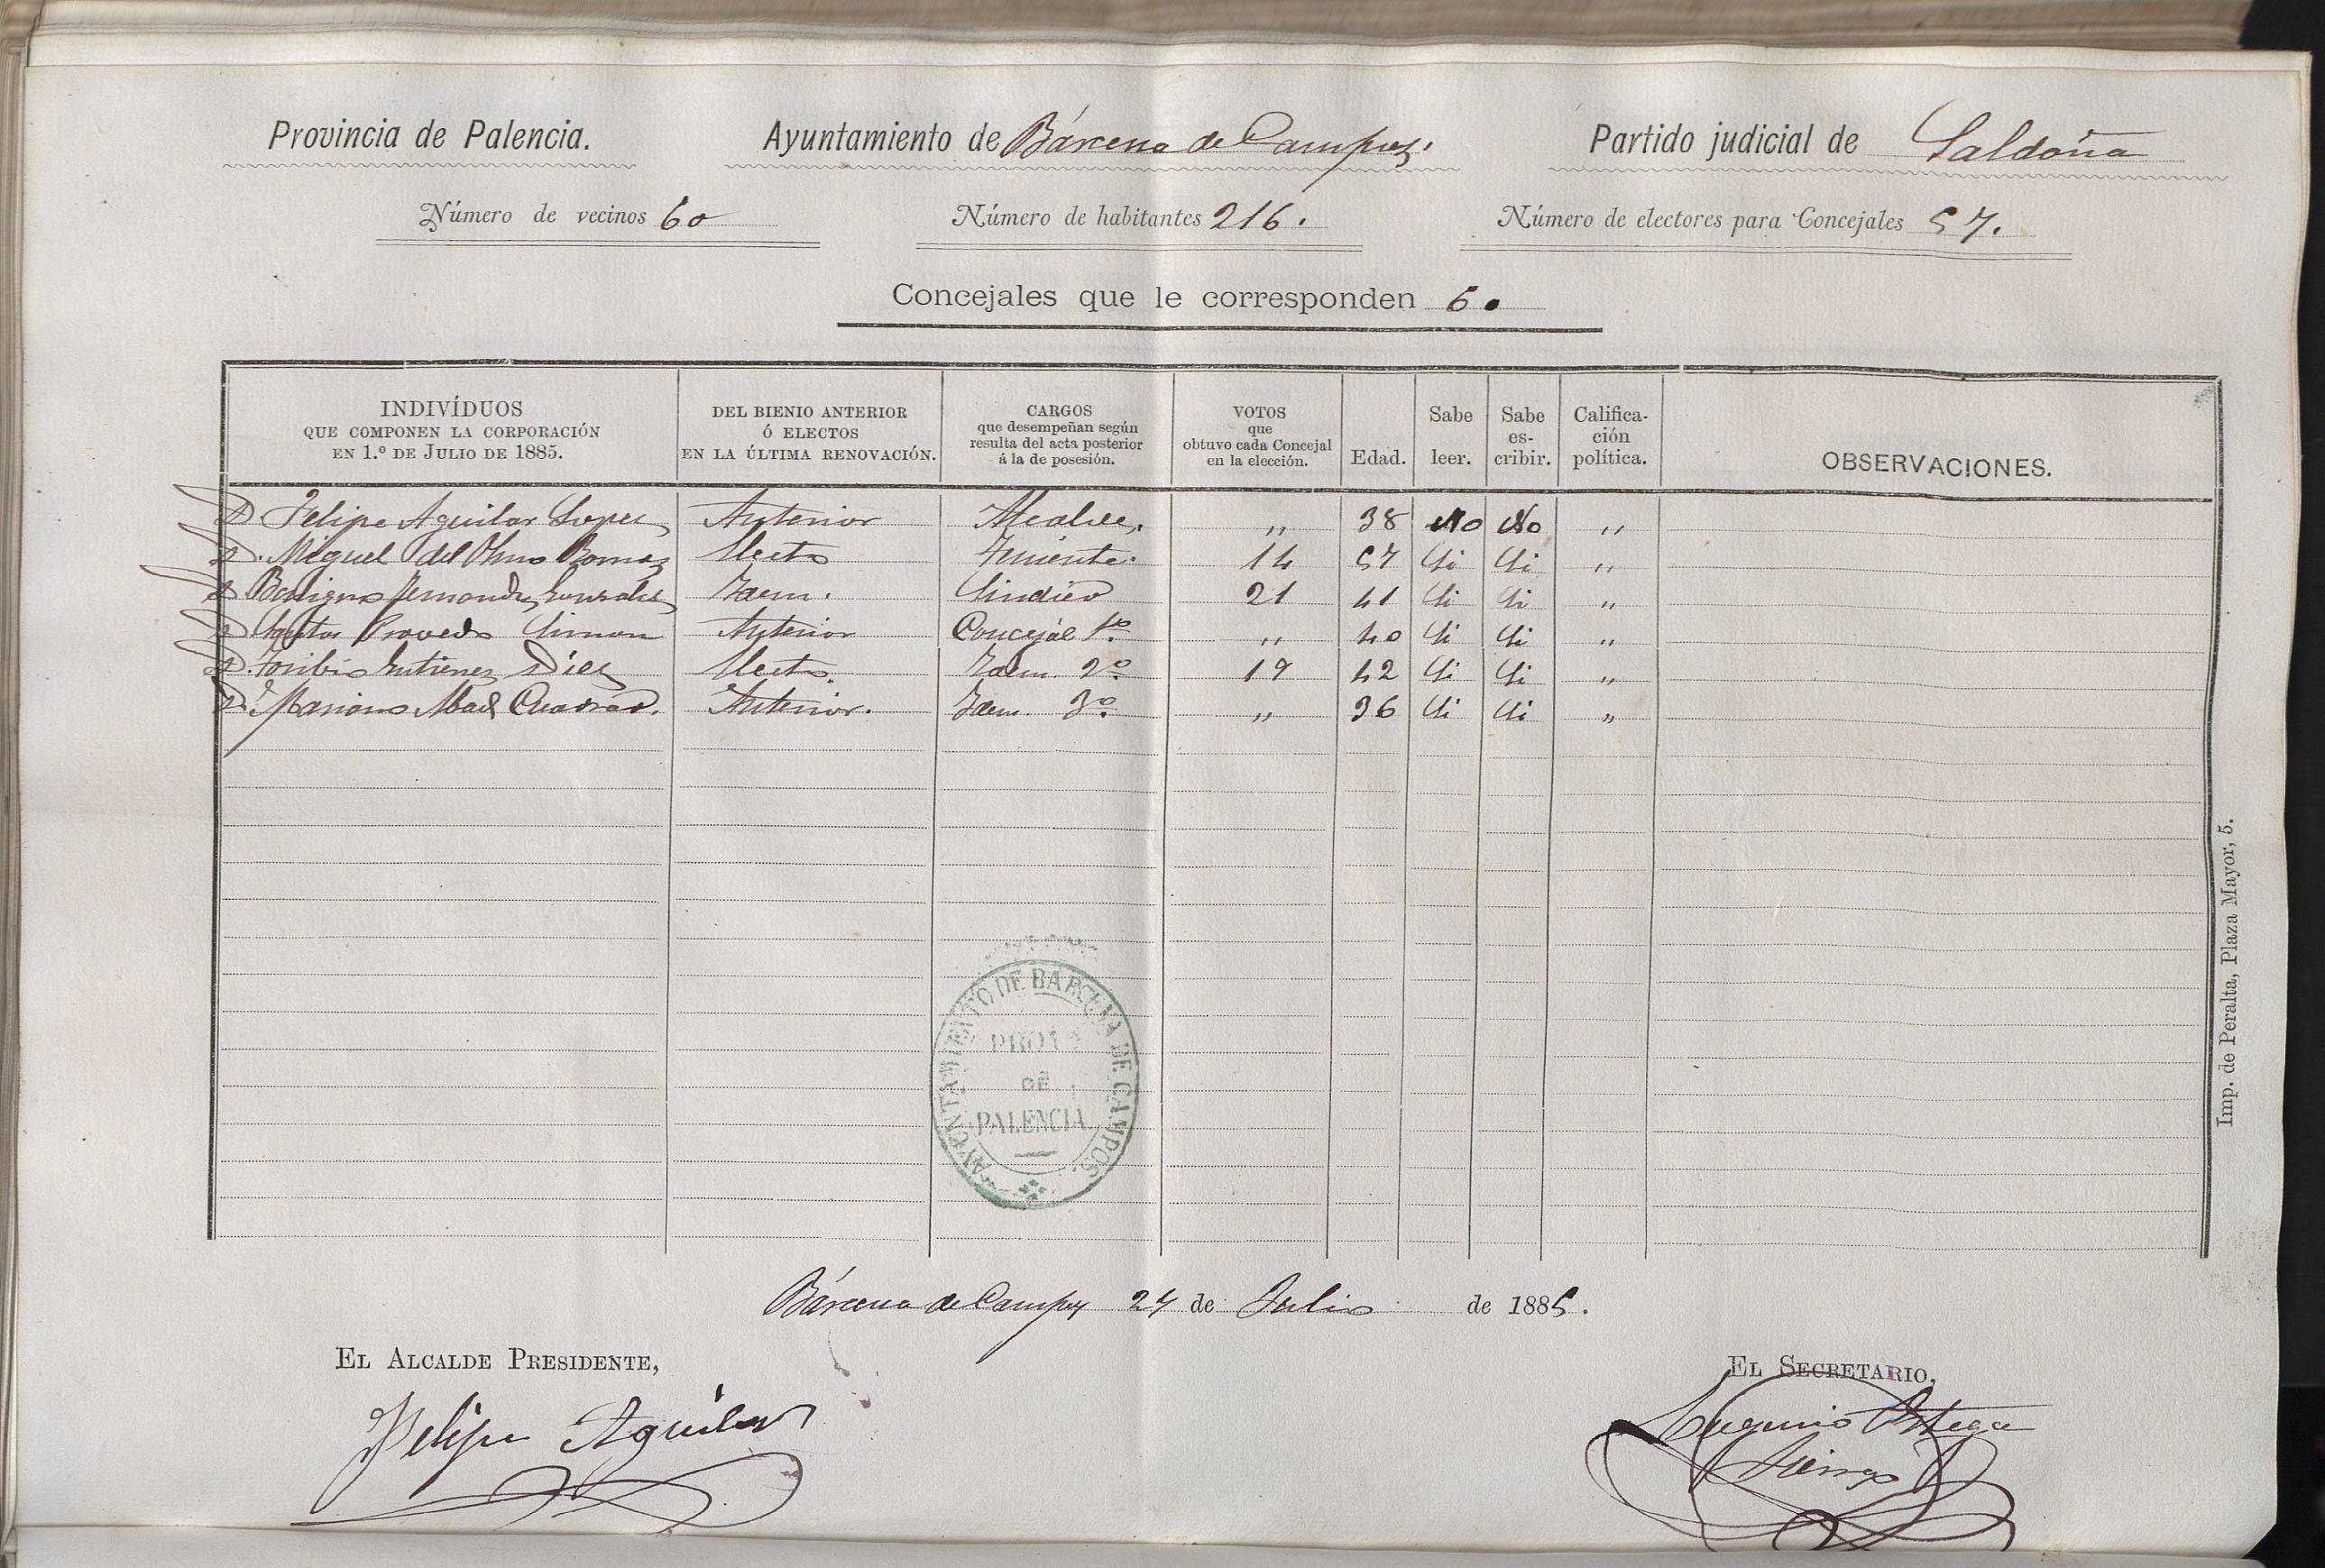 Provincia de Palencia. Ayuntamiento de Bárcena de Campos. Partido judicial de Saldaña
Número de vecinos 60 Número de habitantes 216. Número de electores para Concejales 57.
Concejales que le corresponden 6.
INDIVÍDUOS QUE COMPONEN LA CORPORACIÓN EN 1.º DE JULIO DE 1885. DEL BIENIO ANTERIOR Ó ELECTOS EN LA ÚLTIMA RENOVACIÓN. CARGOS que desempeñan según resulta del acta posterior á la de posesión. VOTOS que obtuvo cada Concejal en la elección. Edad. Sabe leer. Sabe es-cribir. Califica-ción política. OBSERVACIONES.
D. Felipe Aguilar Lopez Anterior Alcalde. " 38 No No "
D. Miguel del Olmo Electo Teniente. 14 57 Si Si "
D. Benigno Fernandez Gonzalez Idem. Sindico 21 41 Si Si "
D. Santos Provedo Simon Anterior Concejal 1º. " 40 Si Si "
D. Toribio Gutierrez Diez Electo. Idem. 2º. 19 42 Si Si "
D. Mariano Abad Cuadrado. Anterior. Idem. 3º. " 36 Si Si "
AYUNTAMIENTO DE BARCENA DE CAMPOS.
PROVA
DE
PALENCIA
Imp. de Peralta, Plaza Mayor, 5.
Bárcena de Campos 24 de Julio de 1885.
EL ALCALDE PRESIDENTE, EL SECRETARIO,
Felipe Aguilar Eugenio Ortega